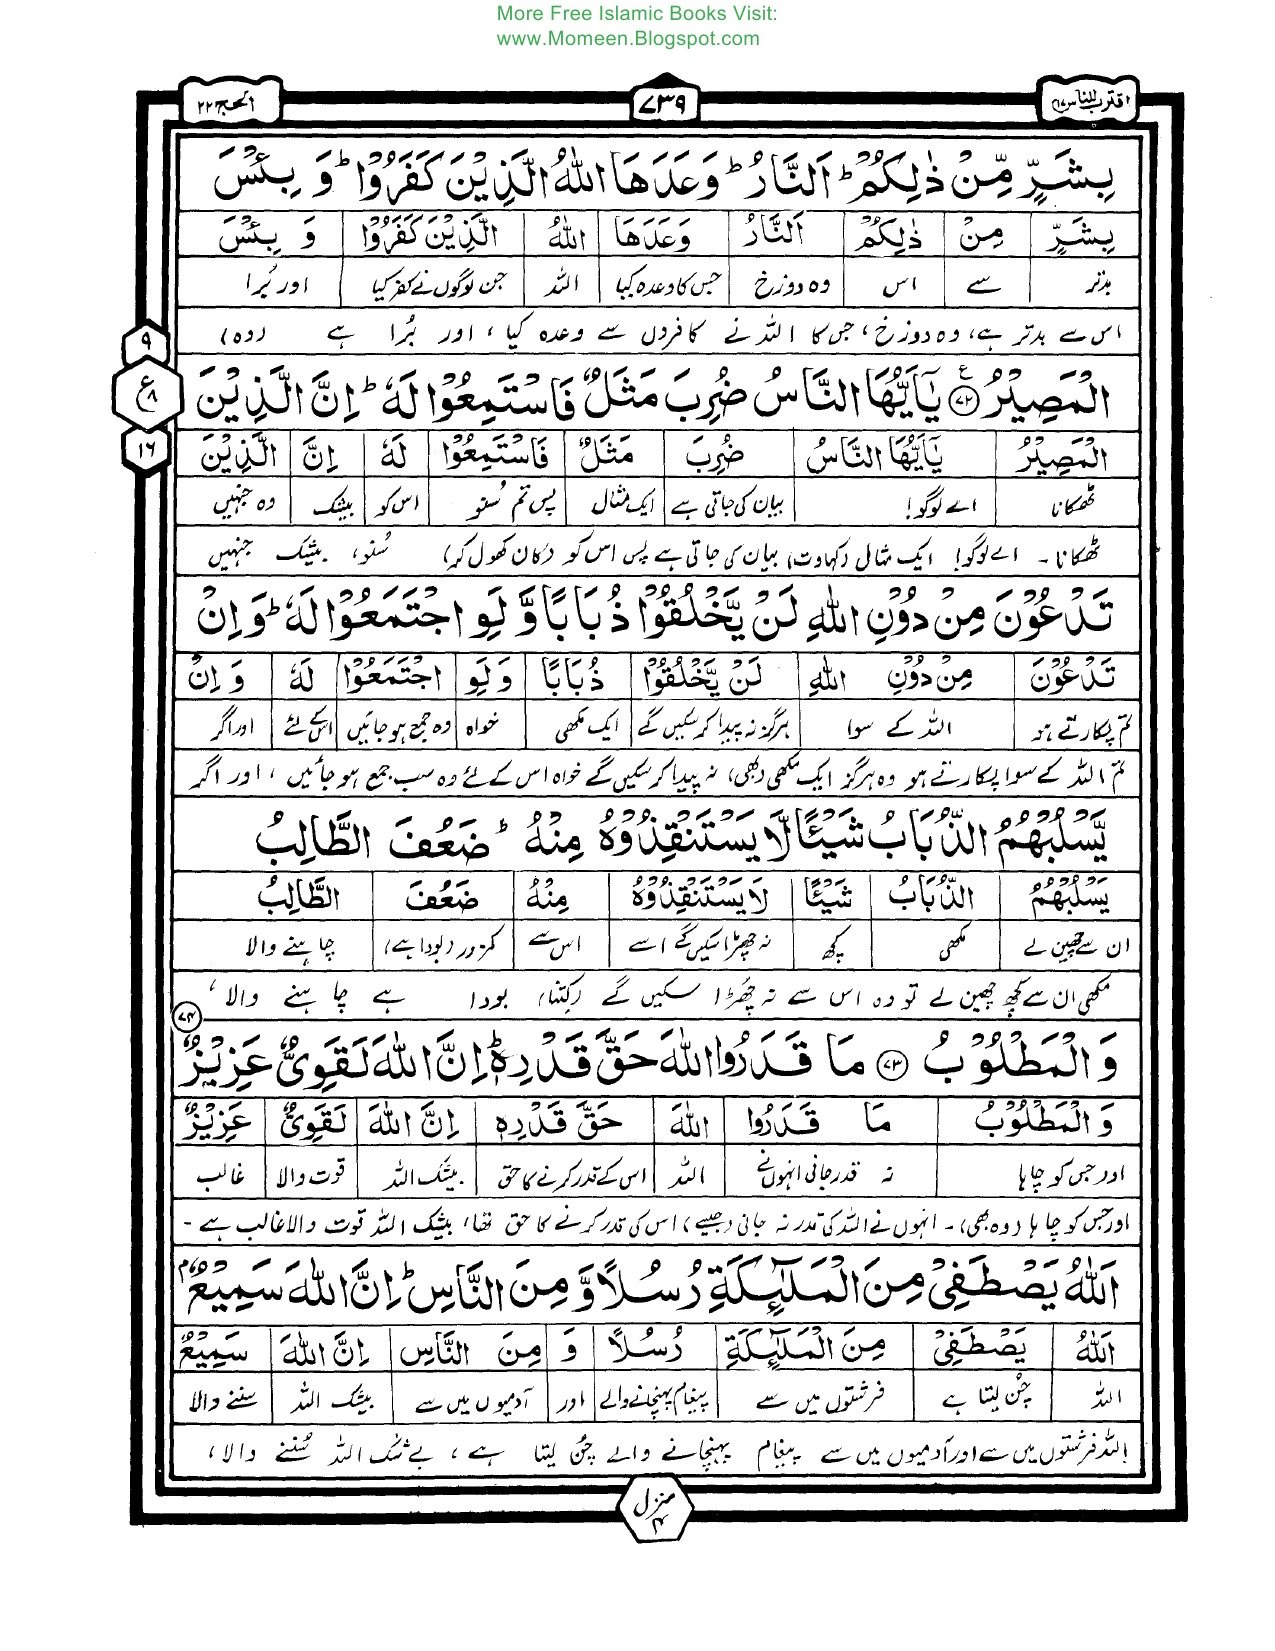 More Free Islamic Books Visit:
www.Momeen.Blogspot.com
اقترب للناس ۱۷
۷۳۹
الحج ۲۲
بِشَرٍّ مِّنْ ذٰلِكُمْ ؕ اَلنَّارُ ؕ وَعَدَهَا اللّٰهُ الَّذِيْنَ كَفَرُوْا ؕ وَ بِئْسَ
بِشَرٍّ مِنْ ذٰلِكُمْ اَلنَّارُ وَعَدَهَا اللّٰهُ الَّذِيْنَ كَفَرُوْا وَ بِئْسَ
بدتر سے اس وہ دوزخ جس کا وعدہ کیا اللہ جن لوگوں نے کفر کیا اور بُرا
اس سے بدتر ہے، وہ دوزخ، جس کا اللہ نے کافروں سے وعدہ کیا، اور بُرا ہے (وہ)
۹
ع ۸
۱۶
الْمَصِيْرُ ﴿۷۲﴾ ع يٰۤاَيُّهَا النَّاسُ ضُرِبَ مَثَلٌ فَاسْتَمِعُوْا لَهٗ ؕ اِنَّ الَّذِيْنَ
الْمَصِيْرُ يٰۤاَيُّهَا النَّاسُ ضُرِبَ مَثَلٌ فَاسْتَمِعُوْا لَهٗ اِنَّ الَّذِيْنَ
ٹھکانا اے لوگو! بیان کی جاتی ہے ایک مثال پس تم سُنو اس کو بیشک وہ جنہیں
ٹھکانا ۔ اے لوگو! ایک مثال (کہاوت) بیان کی جاتی ہے پس اس کو (کان کھول کر) سُنو، بیشک جنہیں
تَدْعُوْنَ مِنْ دُوْنِ اللّٰهِ لَنْ يَّخْلُقُوْا ذُبَابًا وَّلَوِ اجْتَمَعُوْا لَهٗ ؕ وَاِنْ
تَدْعُوْنَ مِنْ دُوْنِ اللّٰهِ لَنْ يَّخْلُقُوْا ذُبَابًا وَلَوِ اجْتَمَعُوْا لَهٗ وَاِنْ
تم پکارتے ہو اللہ کے سوا ہرگز نہ پیدا کر سکیں گے ایک مکھی خواہ وہ جمع ہو جائیں اس کے لئے اور اگر
تم اللہ کے سوا پکارتے ہو وہ ہرگز ایک مکھی (بھی) نہ پیدا کر سکیں گے خواہ اس کے لئے وہ سب جمع ہو جائیں، اور اگر
يَّسْلُبْهُمُ الذُّبَابُ شَيْـًٔا لَّا يَسْتَنْقِذُوْهُ مِنْهُ ؕ ضَعُفَ الطَّالِبُ
يَسْلُبْهُمُ الذُّبَابُ شَيْـًٔا لَا يَسْتَنْقِذُوْهُ مِنْهُ ضَعُفَ الطَّالِبُ
ان سے چھین لے مکھی کچھ نہ چھڑا سکیں گے اسے اس سے کمزور (بودا ہے) چاہنے والا
مکھی ان سے کچھ چھین لے تو وہ اس سے نہ چُھڑا سکیں گے (کتنا) بودا ہے چاہنے والا،
۷۴
وَالْمَطْلُوْبُ ﴿۷۳﴾ مَا قَدَرُوا اللّٰهَ حَقَّ قَدْرِهٖ ؕ اِنَّ اللّٰهَ لَقَوِيٌّ عَزِيْزٌ
وَالْمَطْلُوْبُ مَا قَدَرُوا اللّٰهَ حَقَّ قَدْرِهٖ اِنَّ اللّٰهَ لَقَوِيٌّ عَزِيْزٌ
اور جس کو چاہا نہ قدر جانی انہوں نے اللہ اس کے قدر کرنے کا حق بیشک اللہ قوت والا غالب
اور جس کو چاہا (وہ بھی)۔ انہوں نے اللہ کی قدر نہ جانی (جیسے) اس کی قدر کرنے کا حق تھا، بیشک اللہ قوت والا غالب ہے ۔
اَللّٰهُ يَصْطَفِيْ مِنَ الْمَلٰٓئِكَةِ رُسُلًا وَّمِنَ النَّاسِ ؕ اِنَّ اللّٰهَ سَمِيْعٌۢ
اَللّٰهُ يَصْطَفِيْ مِنَ الْمَلٰٓئِكَةِ رُسُلًا وَ مِنَ النَّاسِ اِنَّ اللّٰهَ سَمِيْعٌ
اللہ چُن لیتا ہے فرشتوں میں سے پیغام پہنچانے والے اور آدمیوں میں سے بیشک اللہ سننے والا
اللہ فرشتوں میں سے اور آدمیوں میں سے پیغام پہنچانے والے چُن لیتا ہے، بے شک اللہ سُننے والا،
منزل ۴